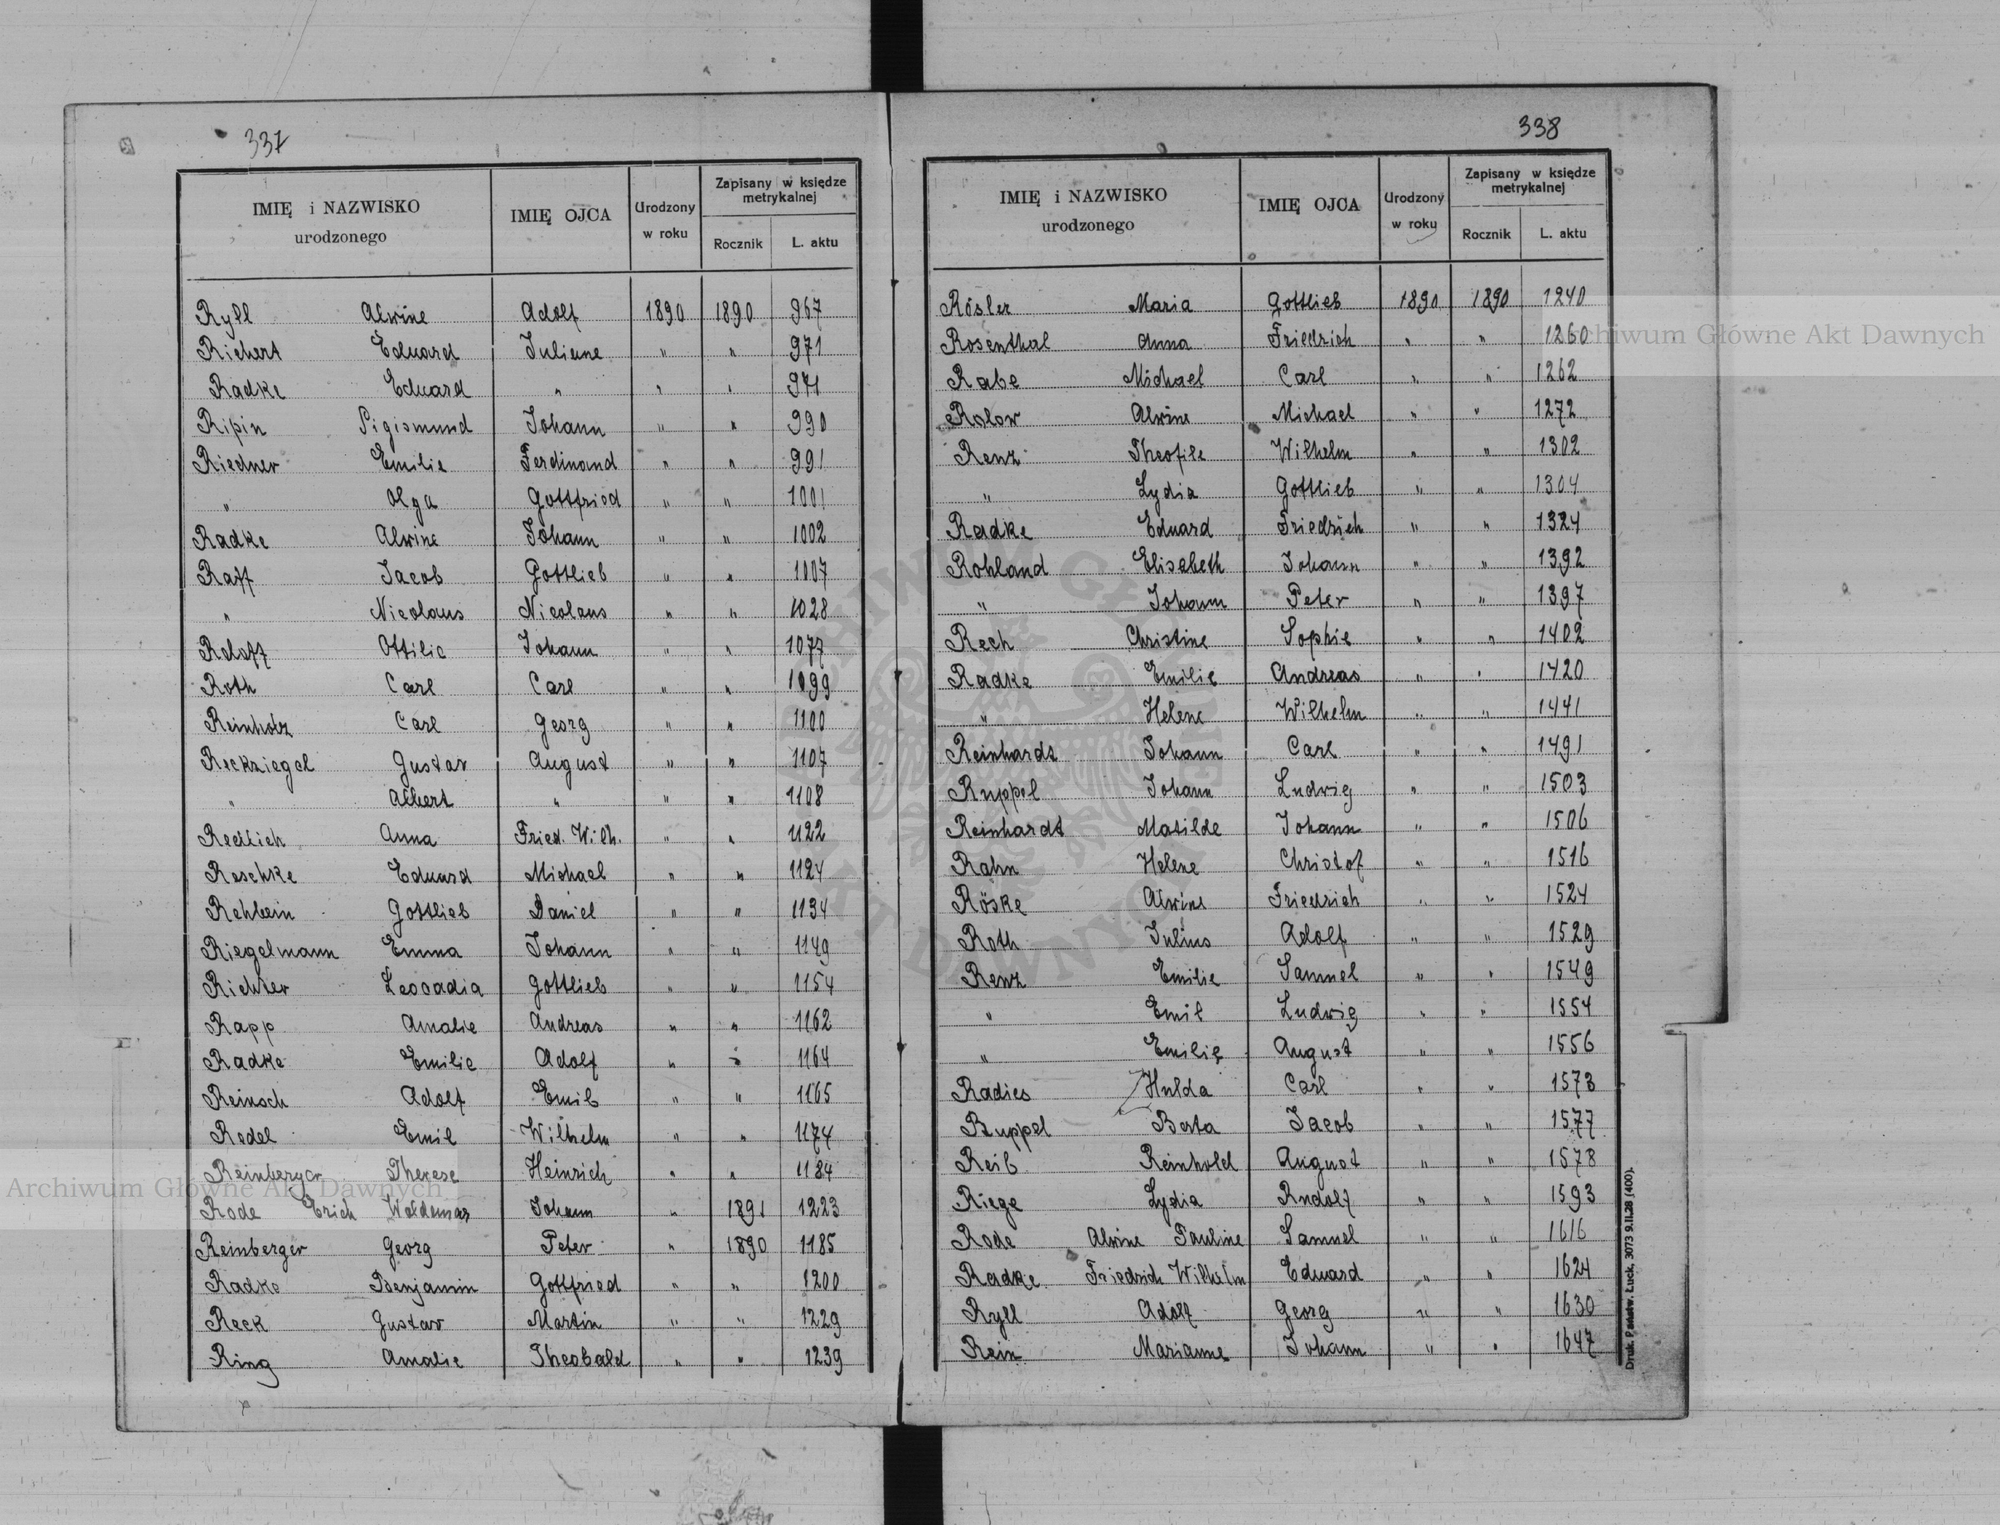 337
IMIĘ i NAZWISKO urodzonego IMIĘ OJCA Urodzony w roku Zapisany w księdze metrykalnej Rocznik L. aktu
Ryll Alwine Adolf 1890 1890 967
Richert Eduard Juliane " " 971
Radke Eduard " " " 971
Ripin Sigismund Johann " " 990
Riedner Emilie Ferdinand " " 991
" Olga Gottfried " " 1001
Radke Alwine Johann " " 1002
Raff Jacob Gottlieb " " 1007
" Nicolaus Nicolaus " " 1028
Roloff Ottilie Johann " " 1077
Roth Carl Carl " " 1099
Reinholz Carl Georg " " 1100
Reckziegel Gustav August " " 1107
" Albert " " " 1108
Redlich Anna Fried. Wilh. " " 1122
Raschke Eduard Michael " " 1124
Rehbein Gottlieb Daniel " " 1134
Riegelmann Emma Johann " " 1149
Richter Leocadia Gottlieb " " 1154
Rapp Amalie Andreas " " 1162
Radke Emilie Adolf " " 1164
Reinsch Adolf Emil " " 1165
Redel Emil Wilhelm " " 1174
Reinberger Therese Heinrich " " 1184
Rode Erich Woldemar Johann " 1891 1223
Reinberger Georg Peter " 1890 1185
Radke Benjamin Gottfried " " 1200
Reck Gustav Martin " " 1229
Ring Amalie Theobald " " 1239
338
IMIĘ i NAZWISKO urodzonego IMIĘ OJCA Urodzony w roku Zapisany w księdze metrykalnej Rocznik L. aktu
Rösler Maria Gottlieb 1890 1890 1240
Rosenthal Anna Friedrich " " 1260
Rabe Michael Carl " " 1262
Rolow Alwine Michael " " 1272
Renz Theofile Wilhelm " " 1302
" Lydia Gottlieb " " 1304
Radke Eduard Friedrich " " 1324
Rohland Elisabeth Johann " " 1392
" Johann Peter " " 1397
Rech Christine Sophie " " 1402
Radke Emilie Andreas " " 1420
" Helene Wilhelm " " 1441
Reinhardt Johann Carl " " 1491
Ruppel Johann Ludwig " " 1503
Reinhardt Matilde Johann " " 1506
Rahn Helene Christof " " 1516
Röske Alwine Friedrich " " 1524
Roth Julius Adolf " " 1529
Renz Emilie Samuel " " 1549
" Emil Ludwig " " 1554
" Emilie August " " 1556
Radies Hulda Carl " " 1573
Ruppel Berta Jacob " " 1577
Reib Reinhold August " " 1578
Riege Lydia Rudolf " " 1593
Rode Alwine Pauline Samuel " " 1616
Radke Friedrich Wilhelm Eduard " " 1624
Ryll Adolf Georg " " 1630
Rein Marianne Johann " " 1647
Druk. Państw. Łuck, 3073 9.II.28 (400).
Archiwum Główne Akt Dawnych
Archiwum Główne Akt Dawnych
ARCHIWUM GŁÓWNE AKT DAWNYCH